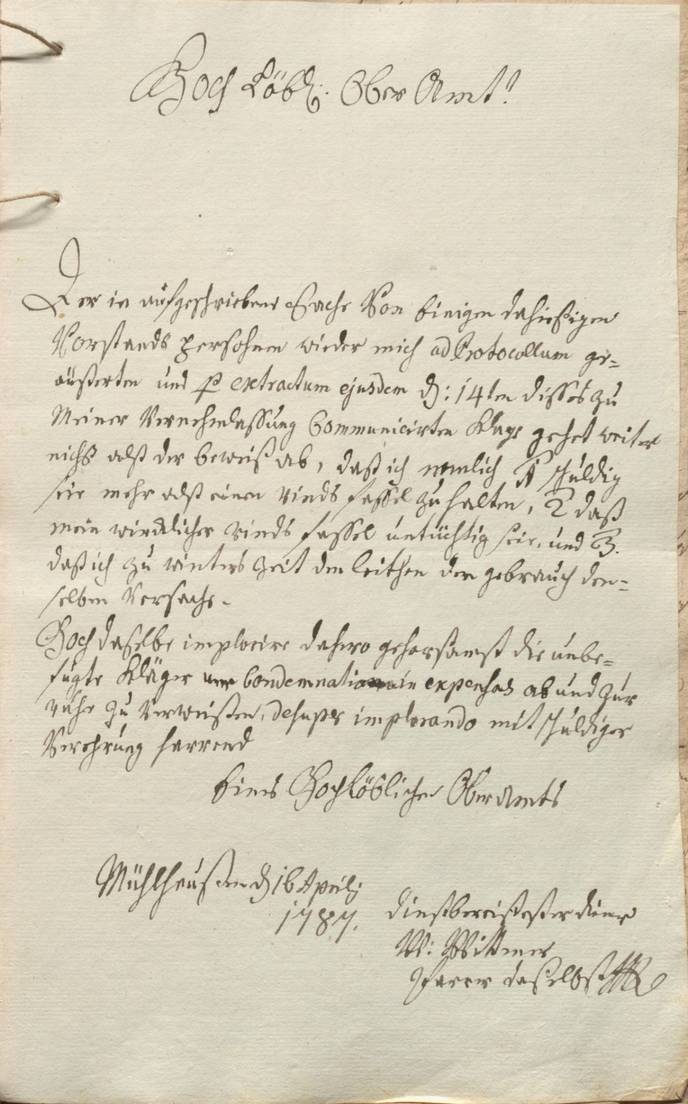 Hoch Löbl. Ober Amt!
Der in aufgeschriebene Sache Von Einigen dahießigen
Vorstands persohnen wieder mich ad Protocollum ge=
äußerten und p extractum ejusdem d: 14ten dießes zu
Meiner Vernehmlassung Communicirten Klage gehet weiter
nichts alß der beweiß ab, daß ich nemlich 1 schuldig
seie mehr alß einen rinds fassel zu halten, 2 daß
mein würcklicher rinds fassel untüchtig seie, und 3.
daß ich zu winters Zeit den leithen den gebrauch den=
selben Versage.
Hoch daßelbe implorire dahero gehorsamst die unbe=
fugte Kläger Condemnatione in expensas ab und zur
ruhe zu verweißen, desuper implorando mit schuldiger
Verehrung harrend
Eines Hochlöblichen Oberamts
Mühlhaußen d 16 Aprilj
1787.
dienstbereitester diener
W: Wittmer
Pfarrer daselbst